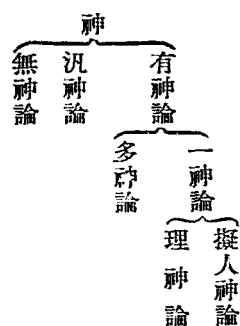 神
有神論
汎神論
無神論
一神論
多神論
擬人神論
理神論